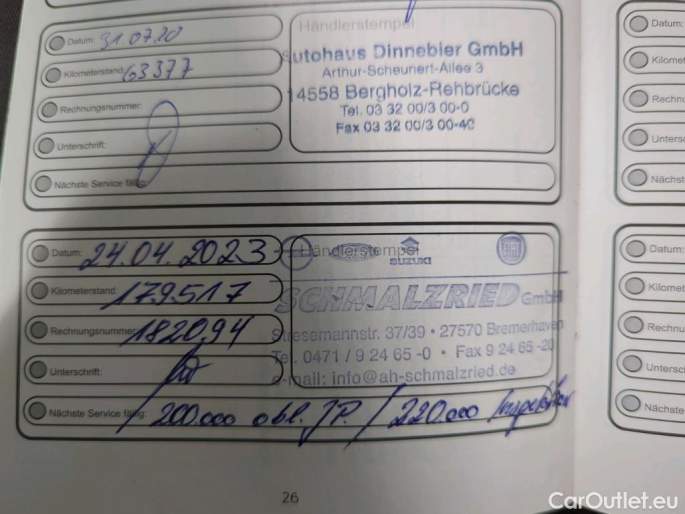 Datum: 31.07.20
Händlerstempel
Kilometerstand: 63377
Autohaus Dinnebier GmbH
Arthur-Scheunert-Allee 3
14558 Bergholz-Rehbrücke
Tel. 03 32 00/3 00-0
Fax 03 32 00/3 00-40
Rechnungsnummer:
Unterschrift:
Nächste Service fällig:
Datum: 24.04.2023
Händlerstempel
SUZUKI
FIAT
Kilometerstand: 179517
SCHMALZRIED GmbH
Rechnungsnummer: 1820,94
Stresemannstr. 37/39 • 27570 Bremerhaven
Tel. 0471 / 9 24 65 -0 • Fax 9 24 65 -20
e-mail: info@ah-schmalzried.de
Unterschrift:
Nächste Service fällig: 200.000 obl. / 220.000 Inspektion
26
Datum:
Kilomet
Rechnu
Untersc
Nächst
Datum:
Kilomet
Rechnu
Untersc
Nächste
CarOutlet.eu